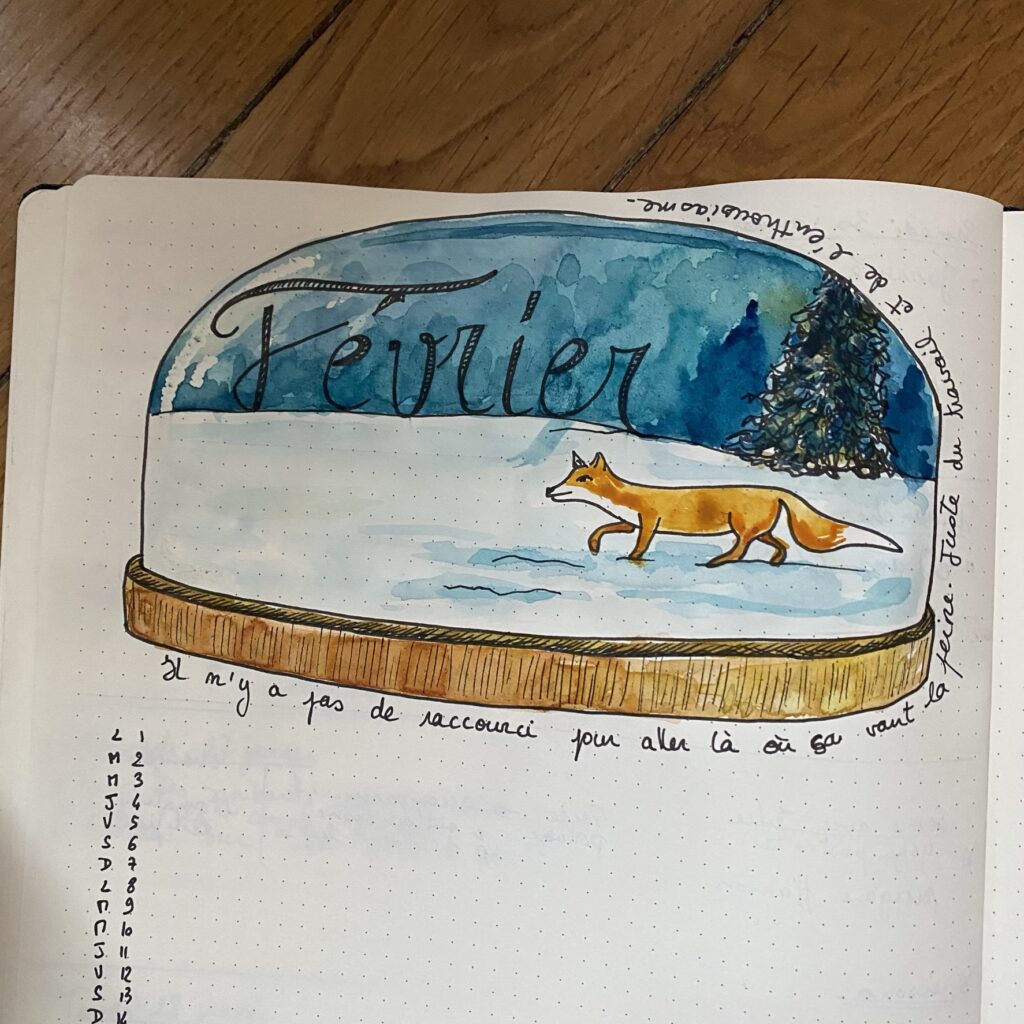 Février
Il n'y a pas de raccourci pour aller là où ça vaut la peine. Juste du travail et de l'enthousiasme.
L 1
M 2
M 3
J 4
V 5
S 6
D 7
L 8
M 9
M 10
J 11
V 12
S 13
D 14